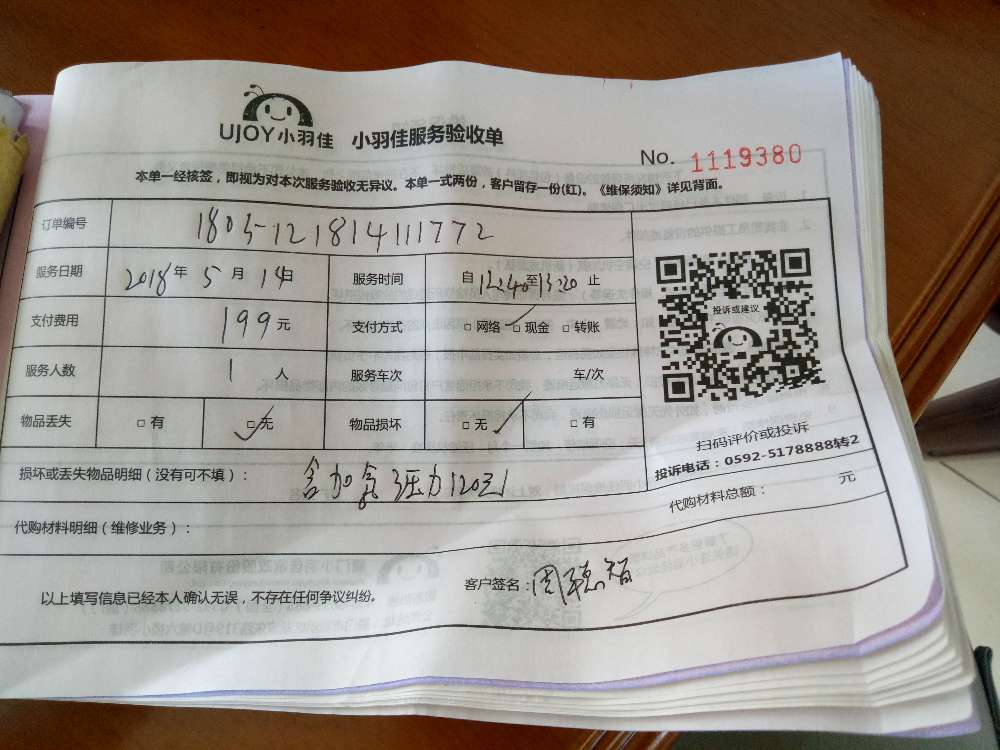 UJOY小羽佳 小羽佳服务验收单
No. 1119380
本单一经核签，即视为对本次服务验收无异议。本单一式两份，客户留存一份(红)。《维保须知》详见背面。
订单编号 1805-121814111772
服务日期 2018年 5月 14日 服务时间 自12:40至13:20止
支付费用 199元 支付方式 □网络 □现金 □转账
服务人数 1 人 服务车次 车/次
物品丢失 □有 □无 物品损坏 □无 □有
投诉或建议
扫码评价或投诉
投诉电话：0592-5178888转2
损坏或丢失物品明细（没有可不填）： 含加氨 120元
代购材料总额： 元
代购材料明细（维修业务）：
以上填写信息已经本人确认无误，不存在任何争议纠纷。
客户签名：周聪智